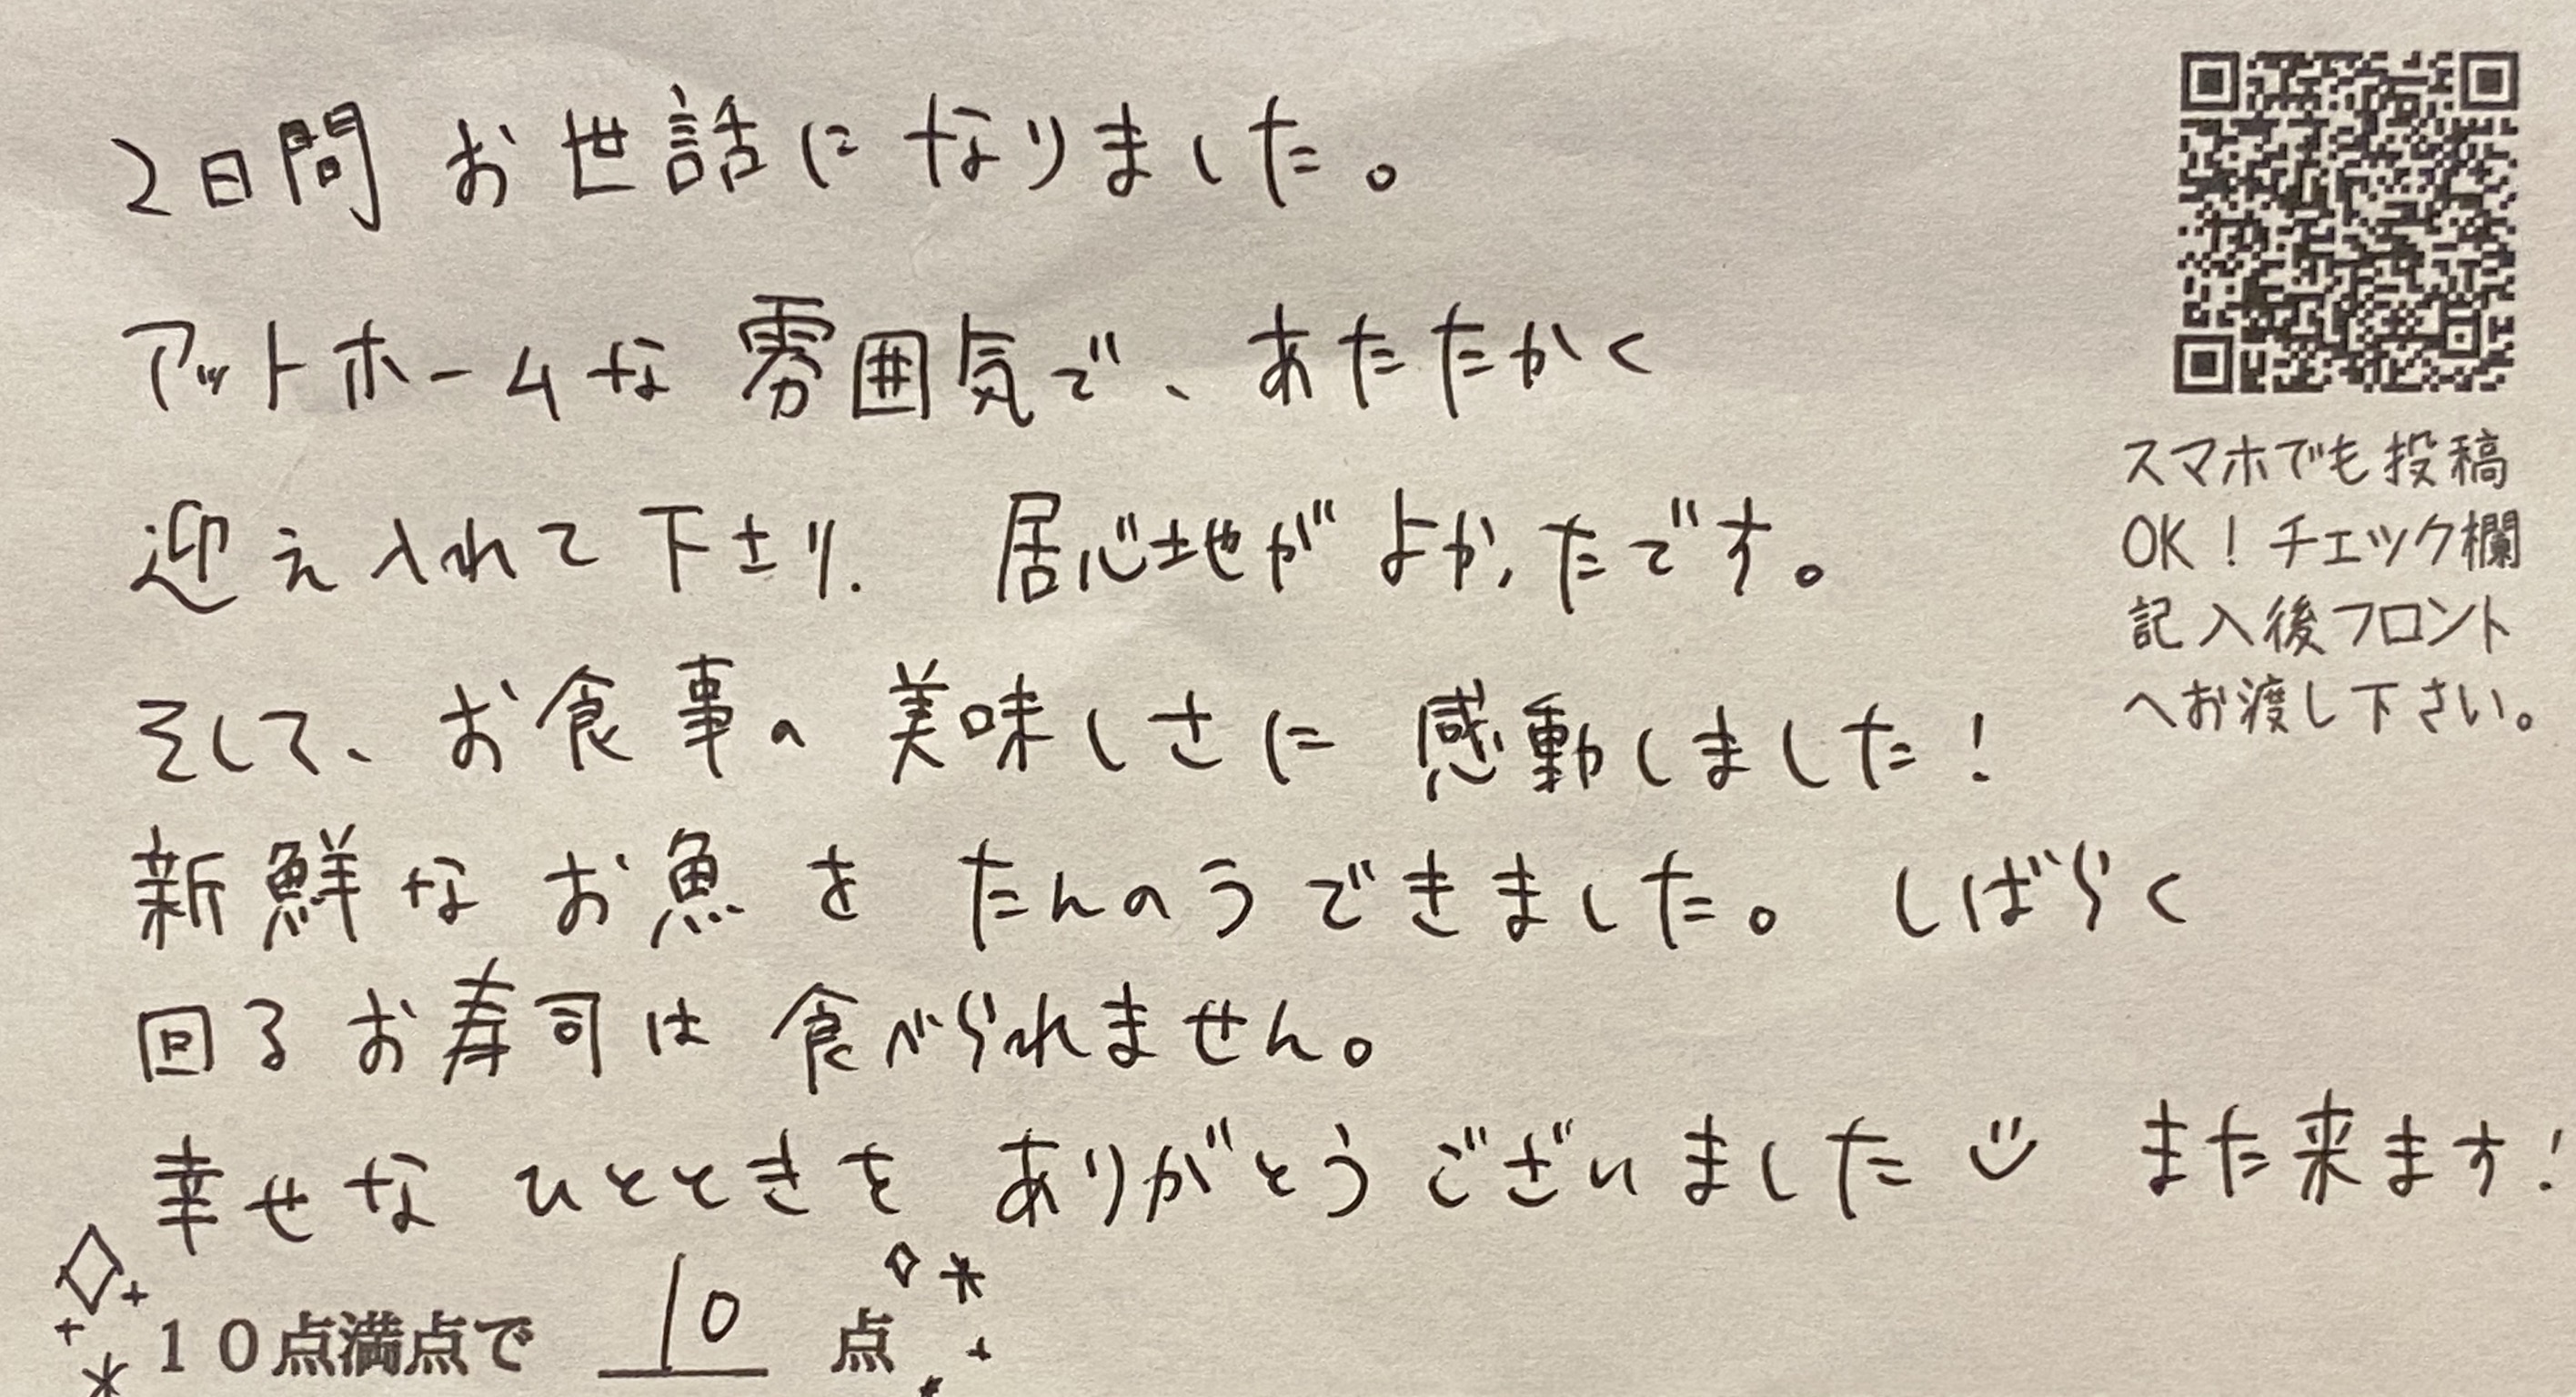 2日間 お世話になりました。
アットホームな雰囲気で、あたたかく
迎え入れて下さり、居心地がよかったです。
そして、お食事の美味しさに感動しました!
新鮮なお魚をたんのうできました。しばらく
回るお寿司は食べられません。
幸せなひとときをありがとうございました また来ます!
10点満点で 10 点
スマホでも投稿
OK!チェック欄
記入後フロント
へお渡し下さい。